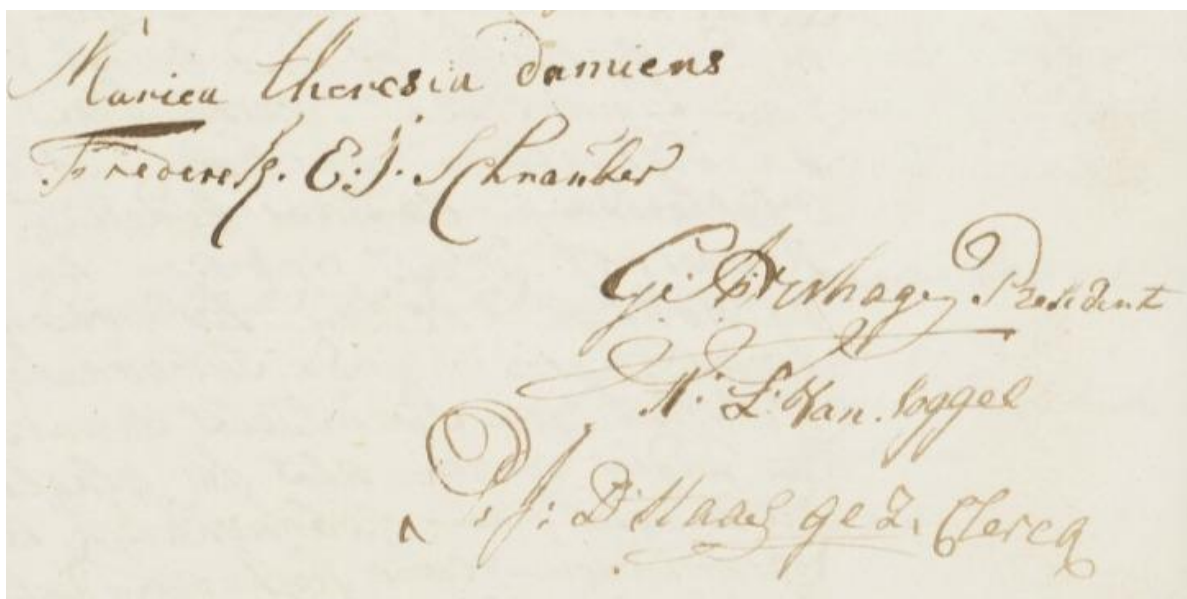 Maria theresia Damiens
Frederek. E: J: Schrauber
G: President
N: L: Van. Loggel
P: J: D'Haas gez. Clercq